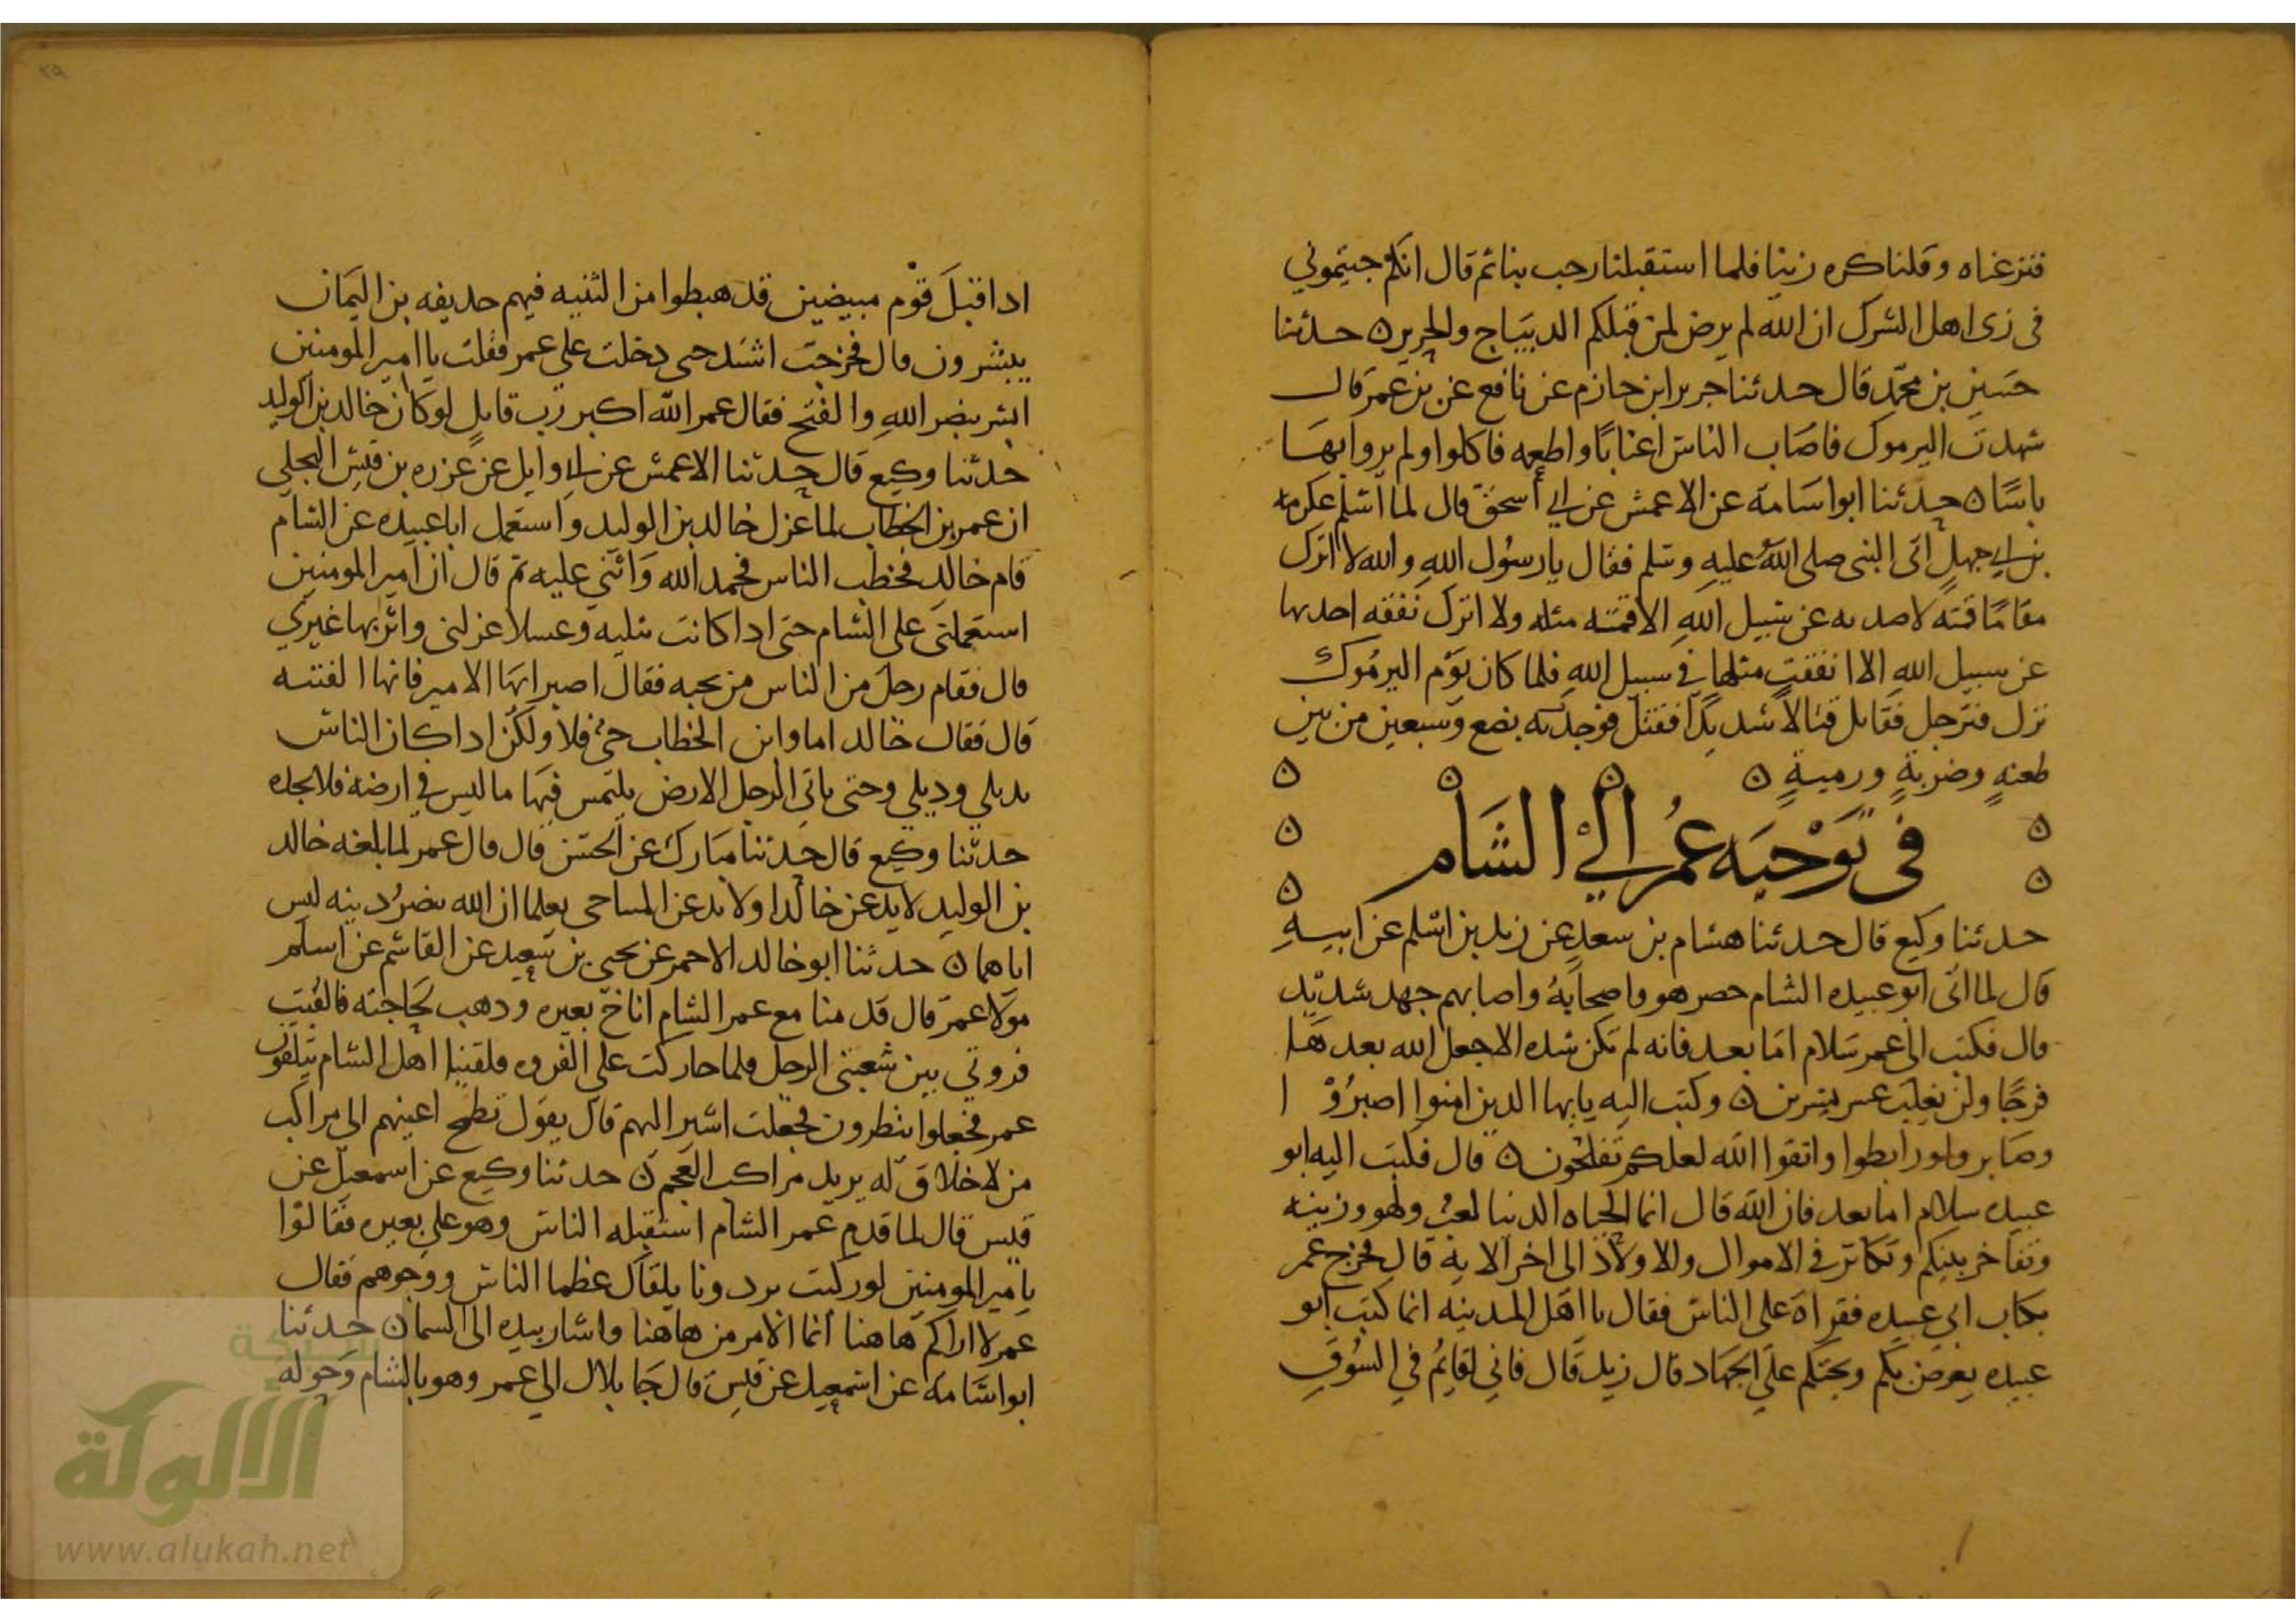 فنزعناه وقلنا كره زينا فلما استقبلنا رحب بنا ثم قال انكم جيتموني
في زى اهل الشرك ان الله لم يرض لمن قبلكم الديباج والحرير ن حدثنا
حسين بن محمد قال حدثنا جرير ابن حازم عن نافع عن بن عمر قال
شهدت اليرموك فاصاب الناس اعنابا واطعمه فاكلوا ولم يروا بها
باسا ن حدثنا ابو اسامة عن الاعمش عن ابي اسحق قال لما اسلم عكرمه
بن ابي جهل اتى النبى صلى الله عليه وسلم فقال يا رسول الله والله لا اترك
مقاما قمته لاصد به عن سبيل الله الا قمت مثله ولا اترك نفقه احد بها
عن سبيل الله الا انفقت مثلها في سبيل الله فلما كان يوم اليرموك
نزل فترجل فقاتل قتالا شديدا فقتل فوجد به بضع وسبعين من بين
طعنه وضربة ورمية ن ن ن ن
في توجيه عمر الي الشام
حدثنا وكيع قال حدثنا هشام بن سعد عن زيد بن اسلم عن ابيه
قال لما اتى ابو عبيده الشام حصر هو واصحابه واصابهم جهد شديد
قال فكتب الى عمر سلام اما بعد فانه لم تكن شده الا جعل الله بعدها
فرجا ولن يغلب عسر يسرين ن وكتب اليه يايها الذين امنوا اصبروا
وصابروا ورابطوا واتقوا الله لعلكم تفلحون ن قال فكتب اليه ابو
عبيده سلام اما بعد فان الله قال انما الحياه الدنيا لعب ولهو وزينه
وتفاخر بينكم وتكاثر في الاموال والاولاد الى اخر الاية قال فخرج عمر
بكتاب ابي عبيده فقراه على الناس فقال يا اهل المدينه انما كتب ابو
عبيده يعرض بكم ويحثكم على الجهاد قال زيد قال فاني لقايم في السوق
اذ اقبل قوم مبيضين قد هبطوا من الثنيه فيهم حذيفه بن اليمان
يبشرون قال فخرجت اشتد حتى دخلت على عمر فقلت يا امير المومنين
ابشر بنصر الله والفتح فقال عمر الله اكبر رب قايل لو كان خالد بن الوليد
حدثنا وكيع قال حدثنا الاعمش عن ابي وايل عن عزره بن قيس البجلي
ان عمر بن الخطاب لما عزل خالد بن الوليد واستعمل ابا عبيده عن الشام
قام خالد فخطب الناس فحمد الله واثنى عليه ثم قال ان امير المومنين
استعملني على الشام حتى اذا كانت بثنيه وعسلا عزلني واثر بها غيري
قال فقام رجل من الناس من تحته فقال اصبر ايها الامير فانها الفتنه
قال فقال خالد اما وابن الخطاب حي فلا ولكن اذا كان الناس
بذي بلي وذي بلي وحتى ياتى الرجل الارض يلتمس فيها ما ليس في ارضه فلا يجده
حدثنا وكيع قال حدثنا مبارك عن الحسن قال قال عمر لما بلغه خالد
بن الوليد خالدا ولا المثنى حتى يعلما ان الله ينصر دينه ليس
اياهما ن حدثنا ابو خالد الاحمر عن يحيى بن سعيد عن القاسم عن اسلم
مولا عمر قال قدمنا مع عمر الشام اناخ بعيره وذهب لحاجته فالقيت
فروتي بين شعبتي الرحل فلما جا ركب على الفروه فلقينا اهل الشام يتلقون
عمر فجعلوا ينظرون فجعلت اشير اليهم قال يقول تطمح اعينهم الى مراكب
من لا خلاق له يريد مراكب العجم ن حدثنا وكيع عن اسمعيل عن
قيس قال لما قدم عمر الشام استقبله الناس وهو على بعيره فقالوا
يا مير المومنين لو ركبت برذونا يلقاك عظما الناس ووجوههم فقال
عمر لا اراكم هاهنا انما الامر من هاهنا واشار بيده الى السما ن حدثنا
ابو اسامة عن اسمعيل عن قيس قال جا بلال الي عمر وهو بالشام وحوله
شبكة
الألوكة
www.alukah.net